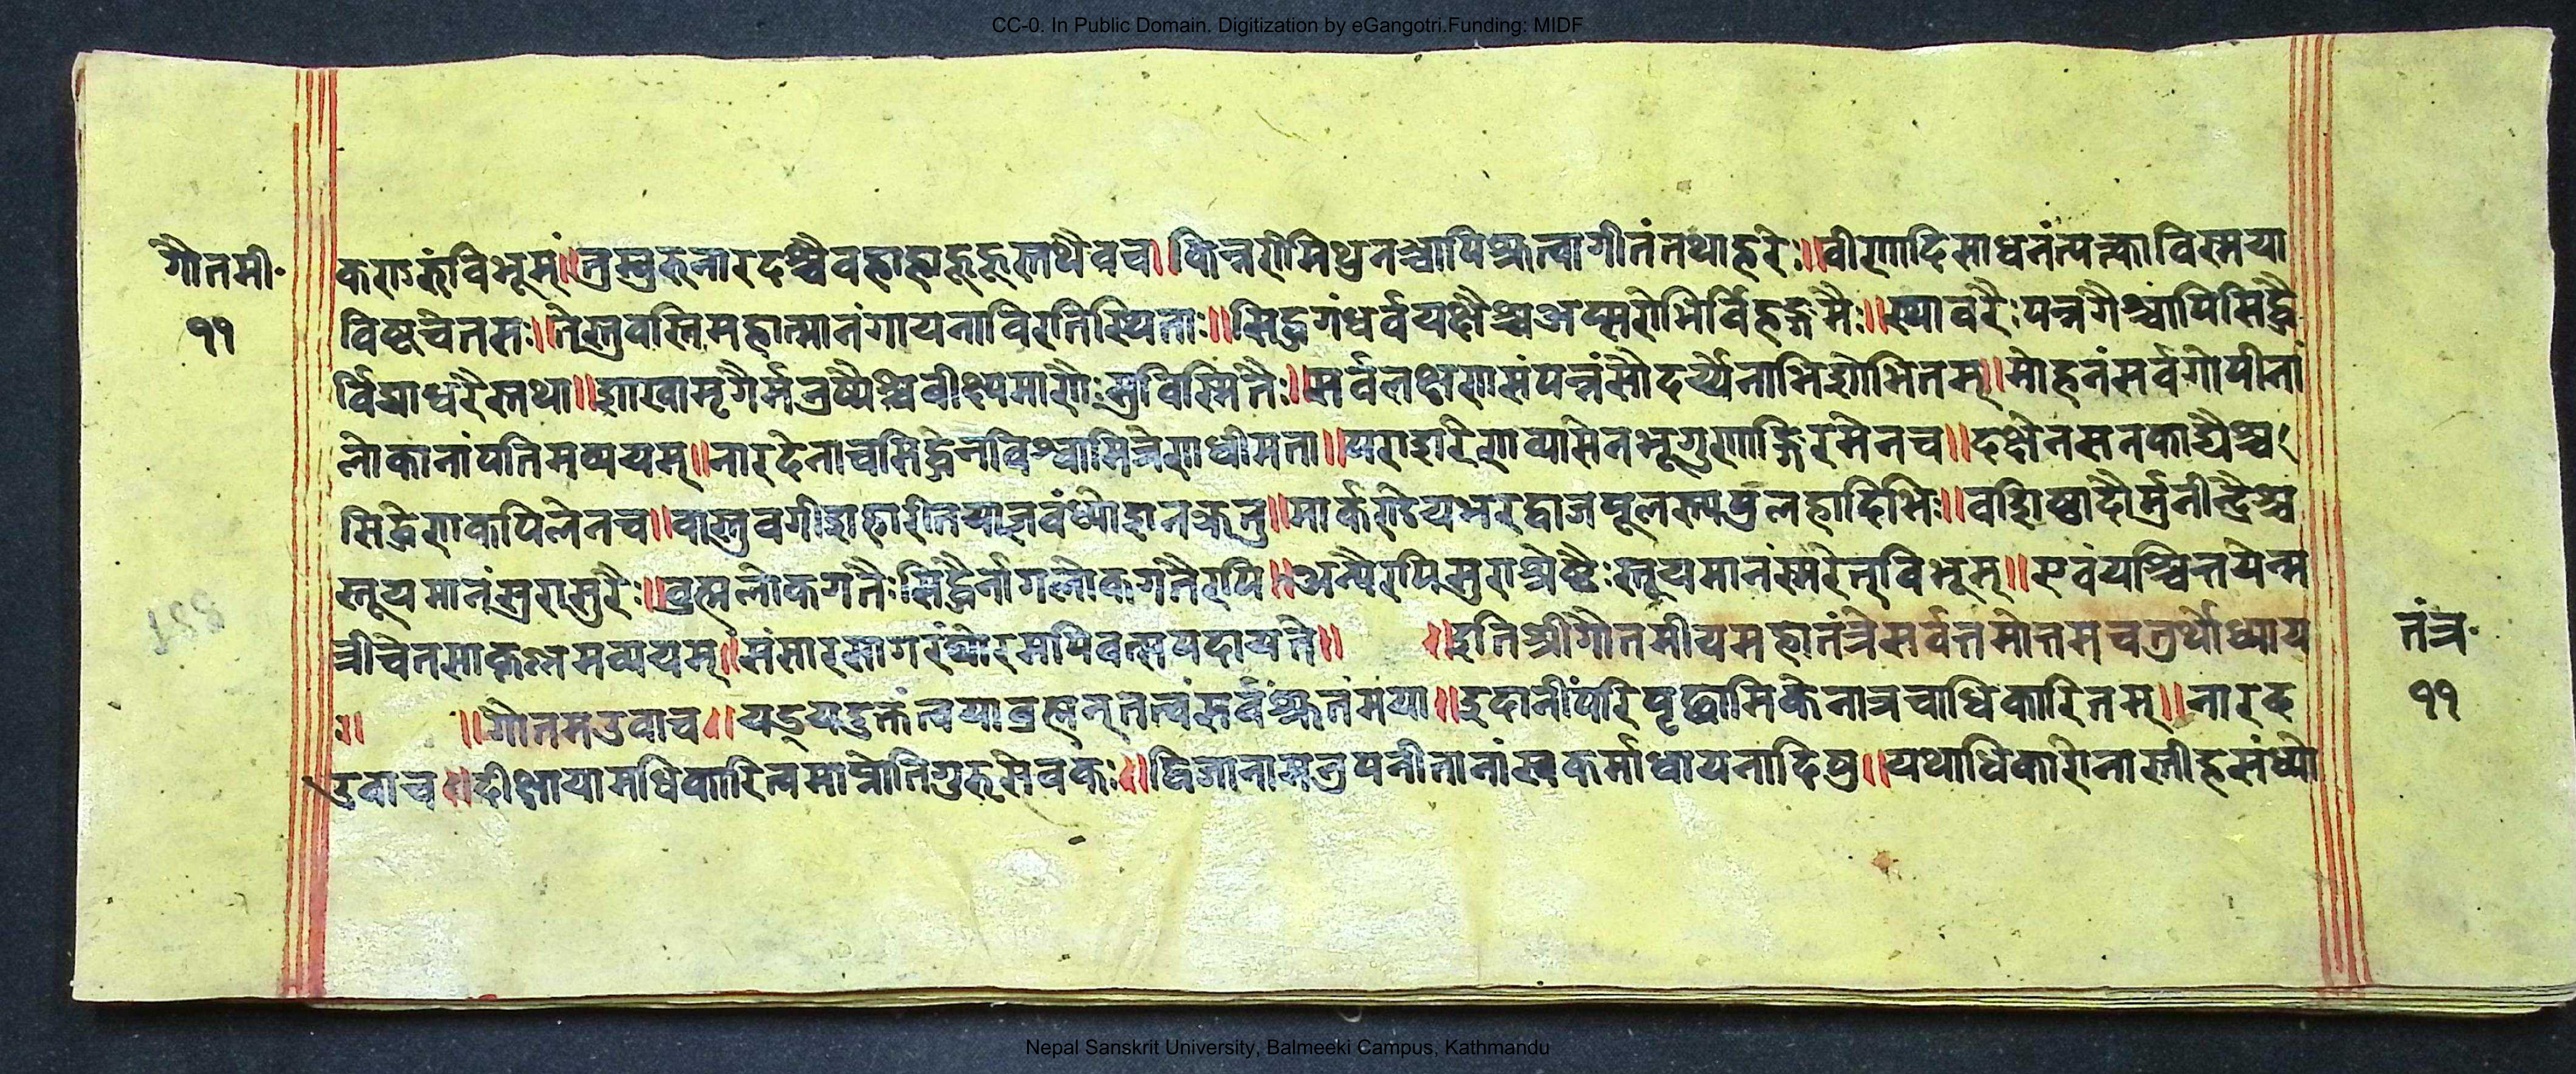 CC-0. In Public Domain. Digitization by eGangotri.Funding: MIDF
गौतमी॰
११
विभूम्॥ नारदश्चैवहाहाहूहूस्तथैवच॥किन्नरोमिथुनञ्चापिश्रुत्वागीतंतथाहरेः॥वीणादिसाधनंत्यत्काविस्मया
विष्टचेतसः॥तेस्तुवन्तिमहात्मानंगायनाविरतिस्थिताः॥सिद्धगंधर्वयक्षैश्चअप्सरोभिर्विहङ्गमैः॥स्थावरैःपन्नगैश्चापिसिद्धै
र्विद्याधरैस्तथा॥शाखामृगैर्मनुष्यैश्चवीक्ष्यमाणैःसुविस्मितैः॥सर्वलक्षणसंपन्नंसौदर्य्येनाभिशोभितम्॥मोहनंसर्वगोपीनां
लोकानांपतिमव्ययम्॥नारदेनाचसिद्धेनविश्वामित्रेणधीमता॥पराशरेणव्यासेनभृगुणाङ्गिरसेनच॥दक्षेनसनकाद्यैश्च
सिद्धेणकपिलेनच॥ मार्कण्डेयभरद्वाजपूलस्त्यपुलहादिभिः॥वशिष्ठादौर्मुनीन्द्रैश्च
स्तूयमानंसुरासुरैः॥ब्रुह्मलोकगतैःसिद्धैर्नागलोकगतैरपि॥अन्यैरपिसुराश्रेष्टैःस्तूयमानंस्मरेत्विभूम्॥एवंयश्चिन्तयेन्म
न्त्रीचेतसाकृष्णमव्ययम्॥संसारसागरंघोरमपिवत्सपदायते॥ ॥इतिश्रीगौतमीयमहातंत्रेसर्वतमोत्तमचतुर्थोध्याय
ः॥ ॥गौतमउवाच॥यद्यदुक्तंत्वयाब्रह्मन्तत्वंसर्वंश्रुतंमया॥इदानींपरिपृछामिकेनात्रचाधिकारितम्॥नारद
उवाच॥दीक्षायामधिकारित्वमाप्नोतिगुरुसेवकः॥द्विजानामनुपनीतानांस्वकर्माध्वायनादिषु॥यथाधिकारोनास्तीहसंध्यो
तंत्र॰
११
188
Nepal Sanskrit University, Balmeeki Campus, Kathmandu